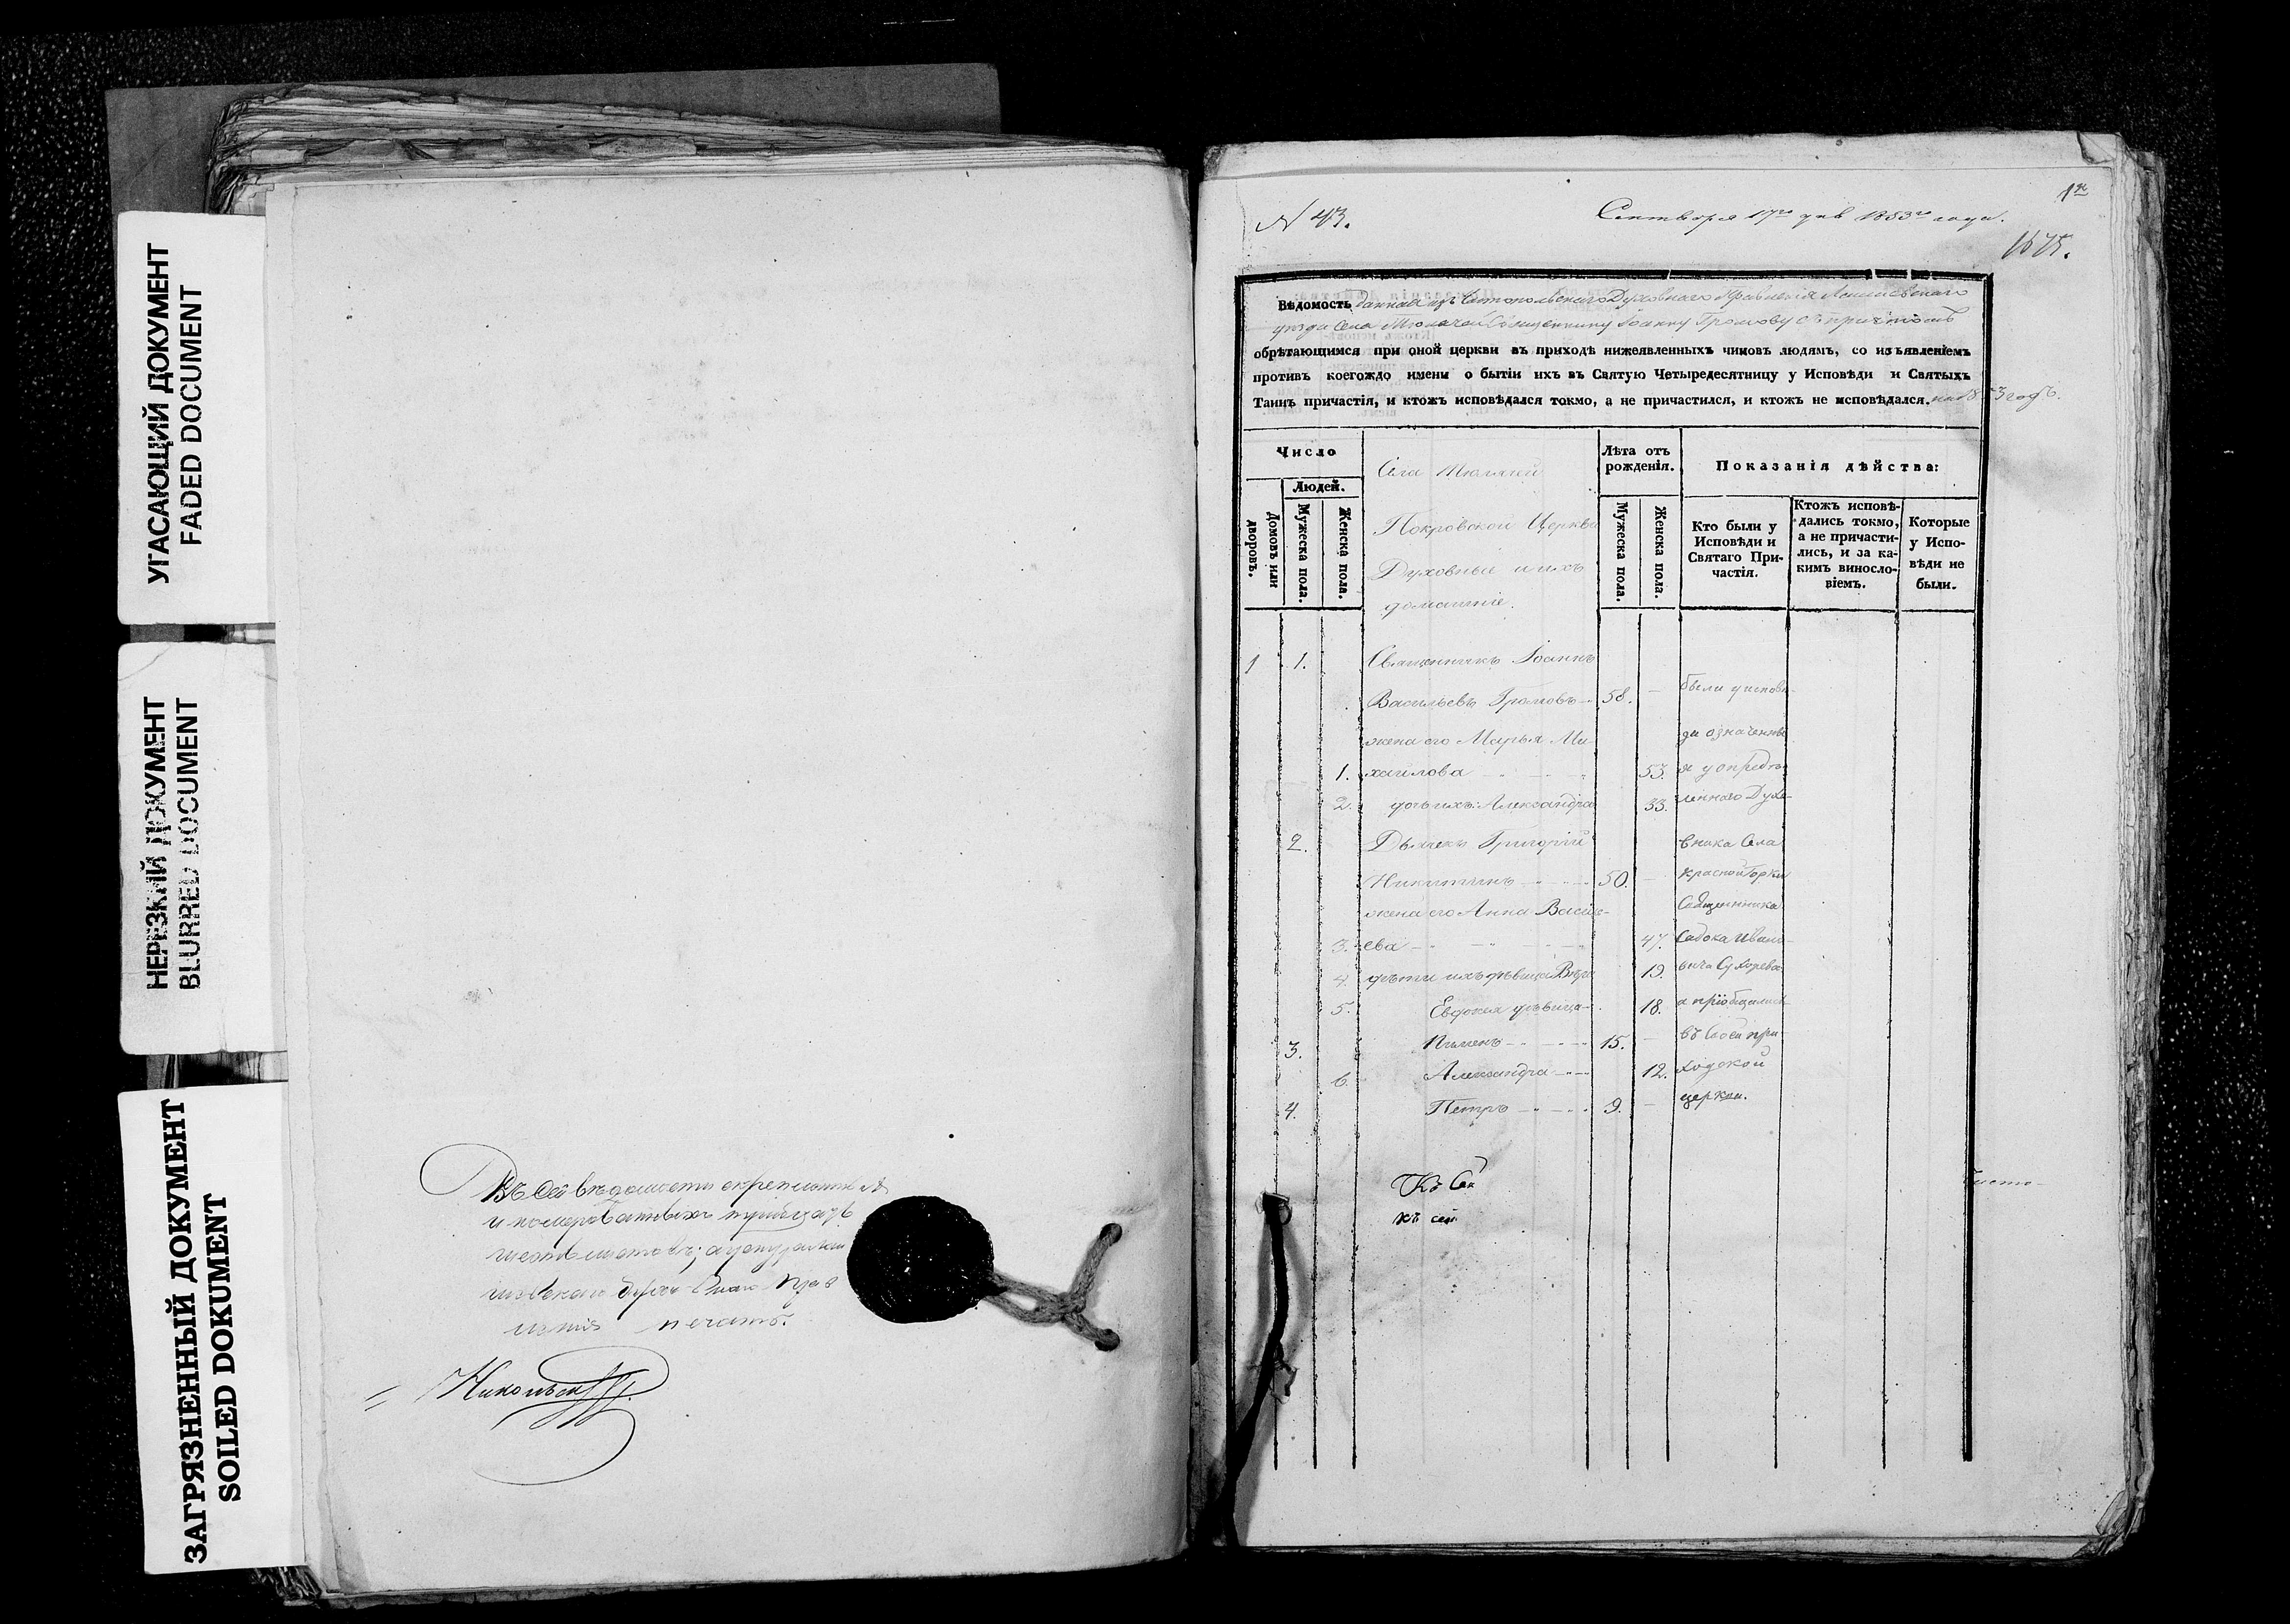 УГАСАЮЩИЙ ДОКУМЕНТ
FADED DOCUMENT
НЕРЕЗКИЙ ДОКУМЕНТ
BLURRED DOCUMENT
ЗАГРЯЗНЕННЫЙ ДОКУМЕНТ
SOILED DOKUMENT
Въ сей вѣдомости скрепленныхъ
и номерованныхъ тритцать
шесть листовъ;
печать.
Никольск
№ 43.
Сентября 17го дня 1853го года.
Вѣдомость данная изъ Чистопольскаго Духовнаго Правленія Лаишевскаго
уезда Села Тюлячей Священнику Іоанну Громову съ причтомъ
обрѣтающимся при оной церкви въ приходѣ нижеявленныхъ чиновъ людямъ, со изъявленіемъ
противъ коегождо имени о бытіи ихъ въ Святую Четыредесятницу у Исповѣди и Святыхъ
Таинъ причастія, и ктожъ исповѣдался токмо, а не причастился, и ктожъ не исповѣдался. на 1853 годъ.
Число
Людей.
Домовъ или дворовъ.
Мужеска пола.
Женска пола.
Села Тюлячей
Покровской Церкви
Духовныи и ихъ
домашніе.
Лѣта отъ
рожденія.
Мужеска пола.
Женска пола.
Показанія дѣйства:
Кто были у
Исповѣди и
Святаго При-
частія.
Ктожъ исповѣ-
дались токмо,
а не причасти-
лись, и за ка-
кимъ винословіемъ.
Которые
у Испо-
вѣди не
были.
1 1. Священникъ Іоаннъ
Васильевъ Громовъ 58. — были у испове-
жена его Марья Ми-
ди означенные
1. хаилова 53. и у опредѣ-
2. дочь ихъ: Александра 33. леннаго Духо-
2. Дьячекъ Григорій вника Села
Никитинъ 50. — Красной Горки
жена его Анна Василь- Священника
3. ева 47. Садока Ивано-
4. дѣти ихъ: дѣвица Вѣра 19. вича Сухарева
5. Евдокия дѣвица 18. а пріобщались
3. Пименъ 15. — въ своей при-
6. Александра 12. ходской
4. Петръ 9. — церкви.
Къ Се
къ сей